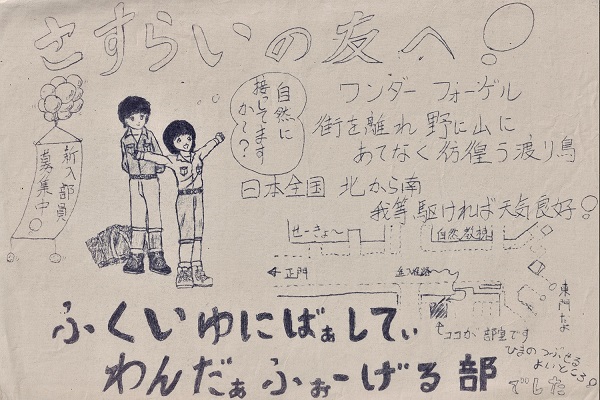 さすらいの友へ!
新入部員
募集中!
自然に
接してます
か〜?
ワンダーフォーゲル
街を離れ 野に山に
あてなく彷徨う渡り鳥
日本全国 北から南
我等 駆ければ 天気良好!
せーきょ〜
自然教棟
←正門
東門だよ
ココが 部室です
ひまの つぶせる
よいところ!
ふくいゆにばぁしてぃ
わんだぁふぉーげる部
でした